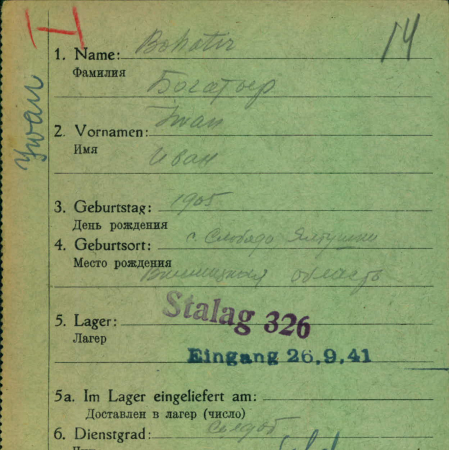 14
Iwan
1. Name: Bohatir
Фамилия
Богатыр
2. Vornamen: Iwan
Имя
Иван
3. Geburtstag: 1905
День рождения
4. Geburtsort: с. Слобада Ялтушки
Место рождения
Винницкая область
Stalag 326
5. Lager:
Лагер
Eingang 26.9.41
5a. Im Lager eingeliefert am:
Доставлен в лагер (число)
6. Dienstgrad: Солдат